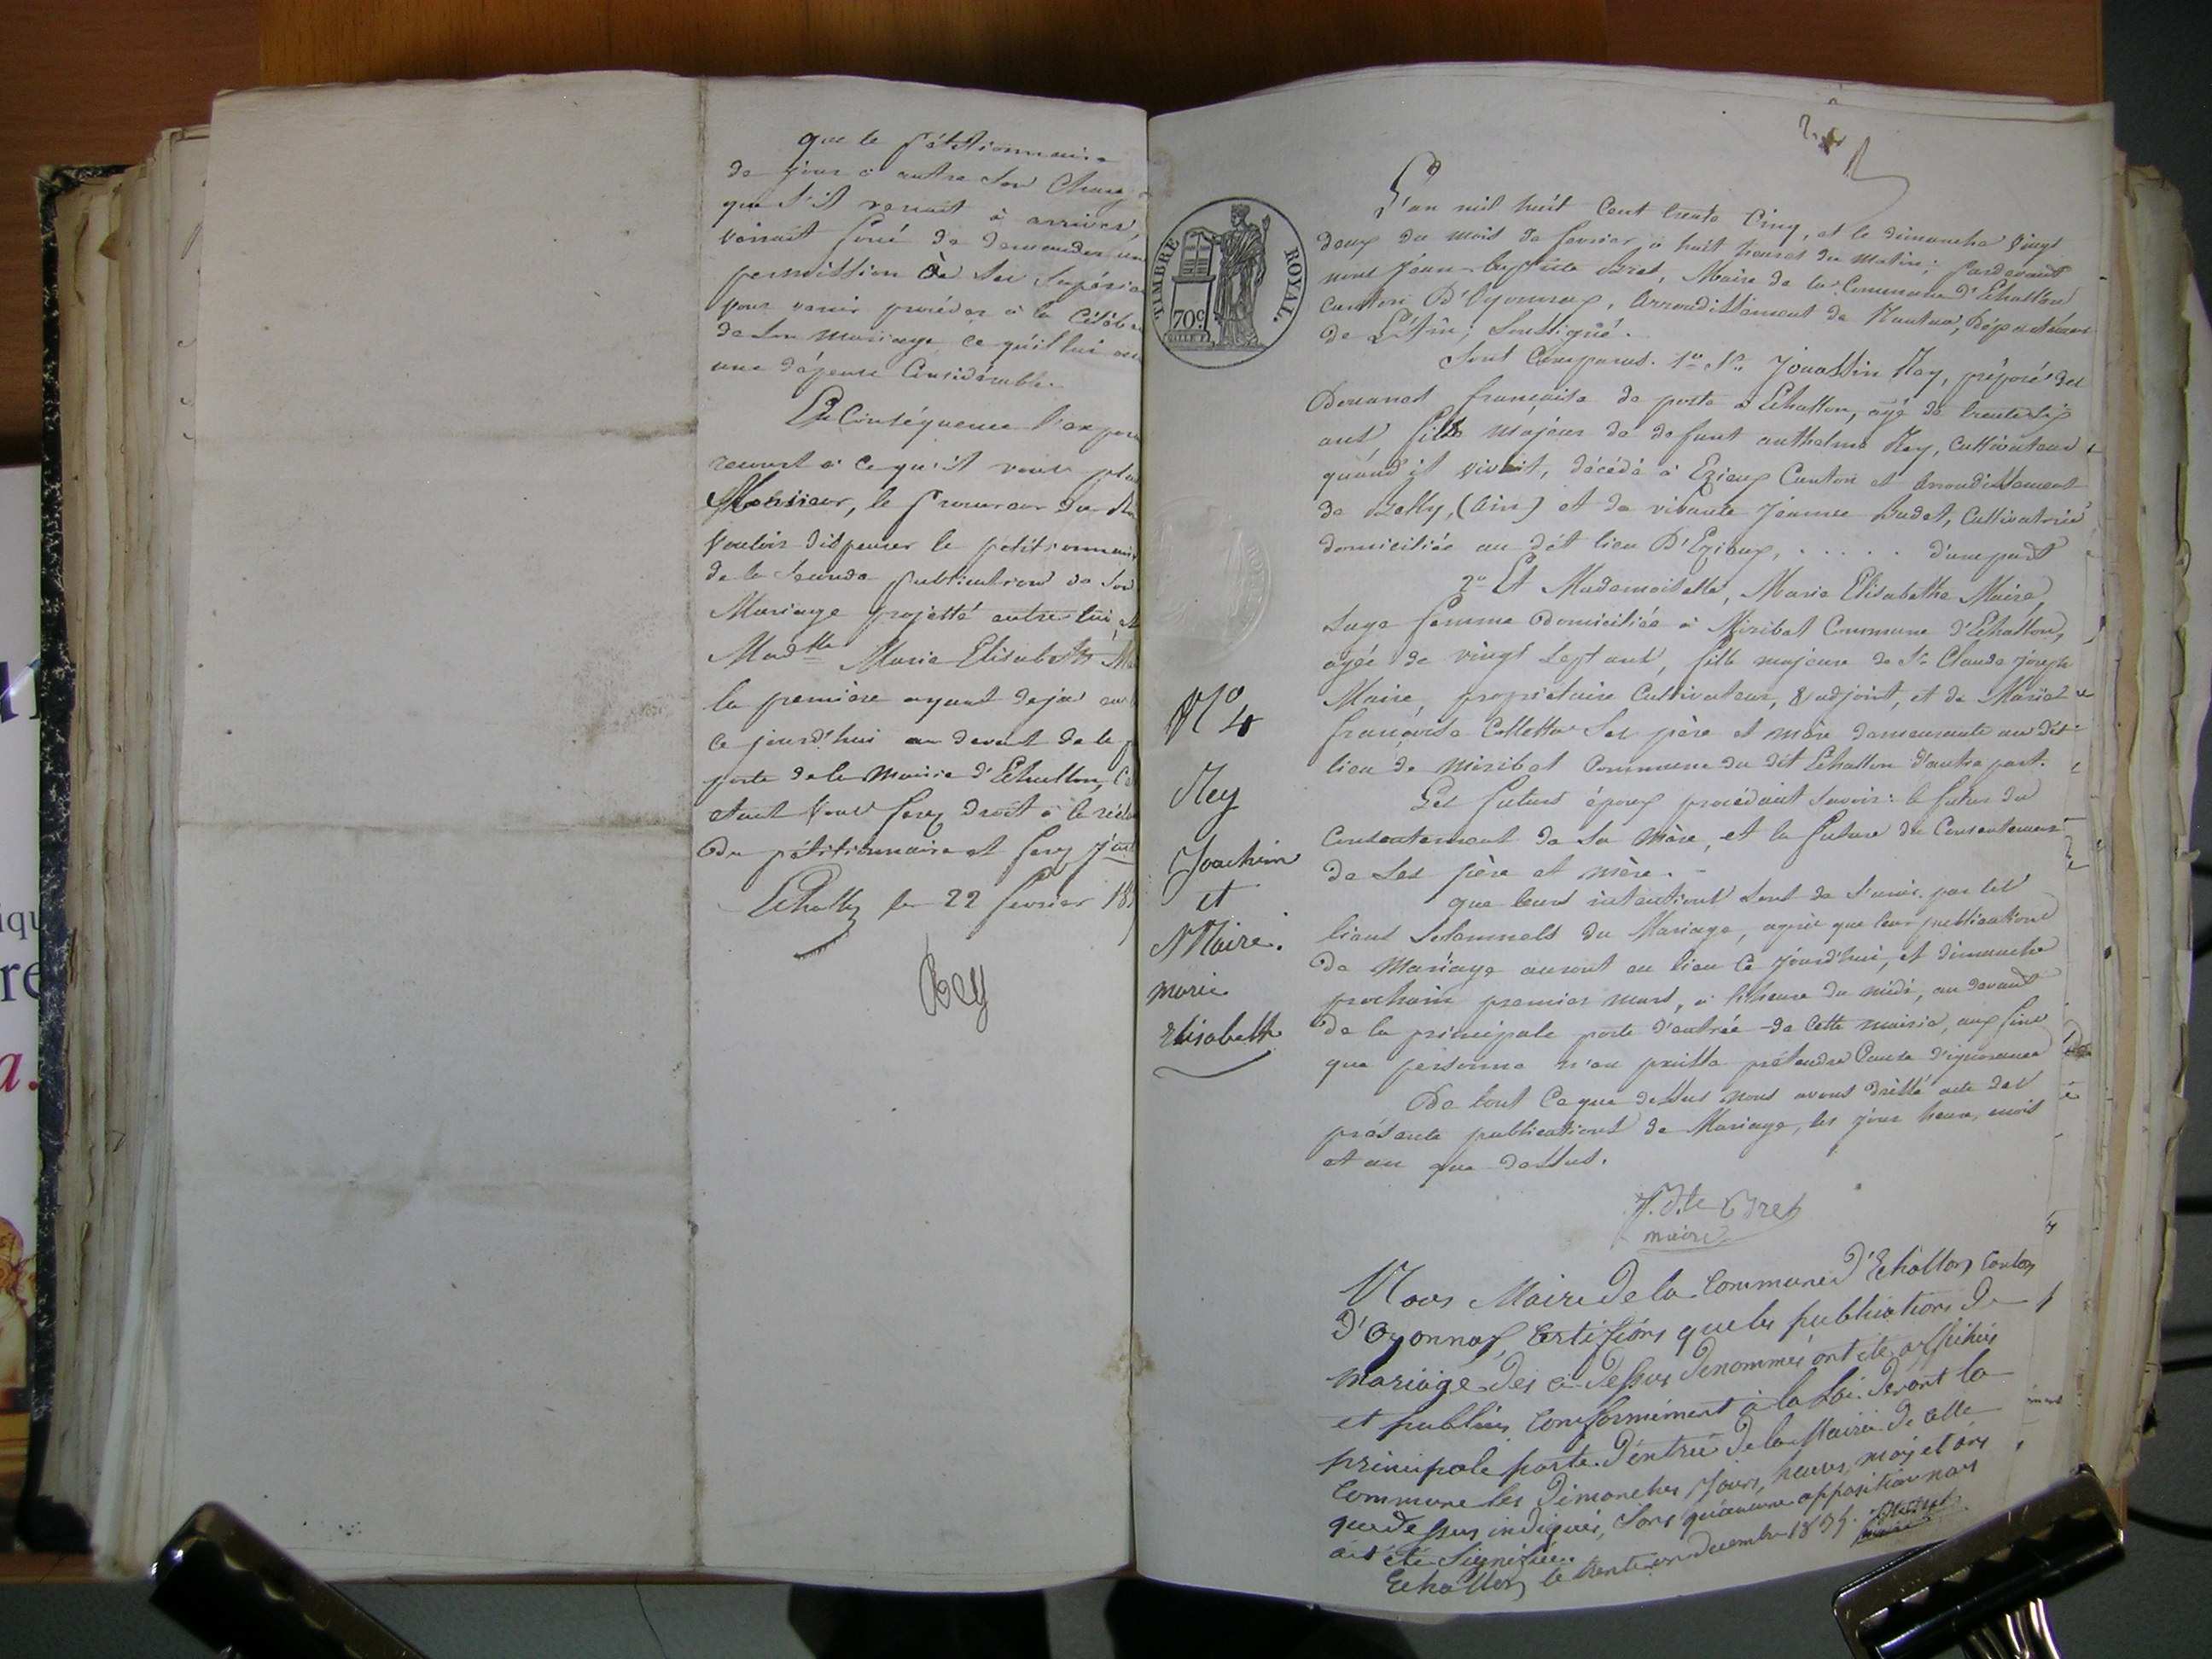 que le pétitionnaire
de jour à autre son Chang
que s'il venait à arriver,
verrait forcé de demander une
permission à ses Supérie
pour venir procéder à la Célébr
de son mariage, ce qu'il lui
une dépense Considérable.
En Conséquence l'expos
recourt à ce qu'il vous plai
Monsieur, le Procureur du Ro
Vouloir dispenser le petitionnair
de la Seconde publication de son
Mariage projetté entre lui et
Madlle Marie Elisabeth Ma
la première ayant deja eu
ce jourd'hui au devant de la p
porte de la Mairie d'Echallon, Ce
etant Vous ferez droit à la récla
du pétitionnaire et ferez
Echallon le 22 fevrier 18
Rey
TIMBRE ROYAL.
70c
L'an mil huit Cent trente Cinq, et le dimanche Vingt
deux du mois de fevrier, à huit heures du matin; pardevant
nous Jean-Baptiste Bret, Maire de la Commune d'Echallon
canton D'Oyonnax, Arrondissement de Nantua, Département
de L'Ain; Soussigné.
Sont Comparus. 1o Sr. Jouassin Rey, préposé des
Douanes françaises de poste à Echallon, agé de trente six
ans, fils majeur de defunt anthelme Rey, Cultivateur
quand il vivait, décédé à Ezieux Canton et Arrondissement
de Belley, (Ain) et de vivante Jeanne Budet, Cultivatrice
domiciliée au dit lieu D'Ezieux, . . . . . d'une part
2o Et Mademoiselle, Marie Elisabethe Maire,
Sage femme Domiciliée à Miribel Commune d'Echallon,
agée de vingt sept ans, fille majeure de Sr. Claude joseph
Maire, propriétaire Cultivateur, & adjoint, et de Marie
françoise Collettaz Ses père et mère demeurants au dit
lieu de Miribel Commune du dit Echallon d'autre part.
Les futurs époux procédant Savoir: le futur du
Consentement de Sa Mère, et la future du Consentement
de Ses père et mère.
que leurs intentions sont de s'unir par les
liens Solennels du Mariage, après que leur publications
de Mariage auront eu lieu Ce jourd'hui, et dimanche
prochain premier mars, à l'heure du midi, au devant
de la principale porte d'entrée de Cette mairie, aux fins
que personne n'en puisse prétendre Cause d'ignorance
De tout Ce que dessus nous avons dréssé acte des
présente publications de Mariage, les jour heure, mois
et an que dessus.
J. Bte Bret
maire
No 4
Rey
Joachim
et
Maire.
marie
Elisabeth
Nous Maire de la Commune d'Echallon Canton
d'Oyonnax, Certifions que les publications de
mariage des ci-dessus denommés ont été affichées
et publiées Conformément à la Loi. devant la
principale porte d'entrée de la Mairie de Cette
Commune les dimanches jours, heures, mois et ans
que dessus indiqués, Sans qu'aucune opposition nous
ait été Signifiée.
Echallon, le trente un decembre 1835.